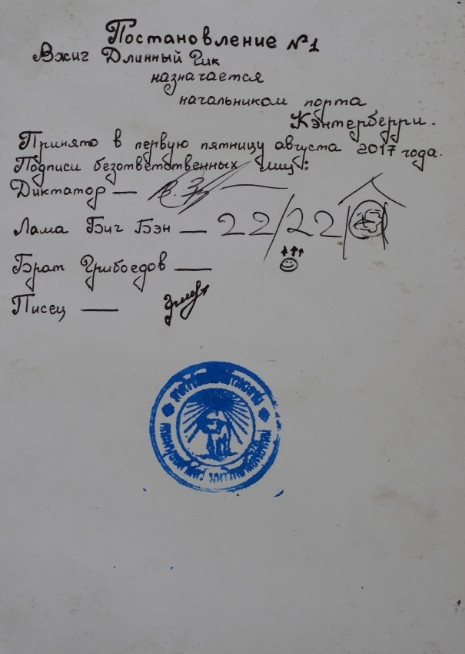 Постановление №1
Вжиг Длинный Гик
назначается
начальником порта
Кэнтерберри.
Принято в первую пятницу августа 2017 года.
Подписи безответственных лиц:
Диктатор —
Лама Биг Бэн — 22/22/
Брат Грибоедов —
Писец —